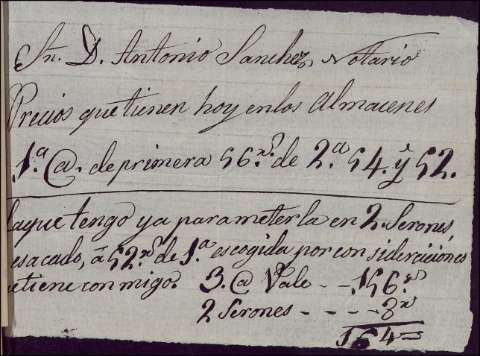 Sr. D. Antonio Sanchez, Notario
Precios que tienen hoy en los Almacenes
1.ª @. de primera 56.rs de 2.ª 54. y 52.
la que tengo ya para meterla en 2. Serones
esacado, á 52.rs de 1.ª escogida por consideraciones
etiene con migo. 3. @ Vale - - 156.rs
2 Serones - - - - - 8rs
164=